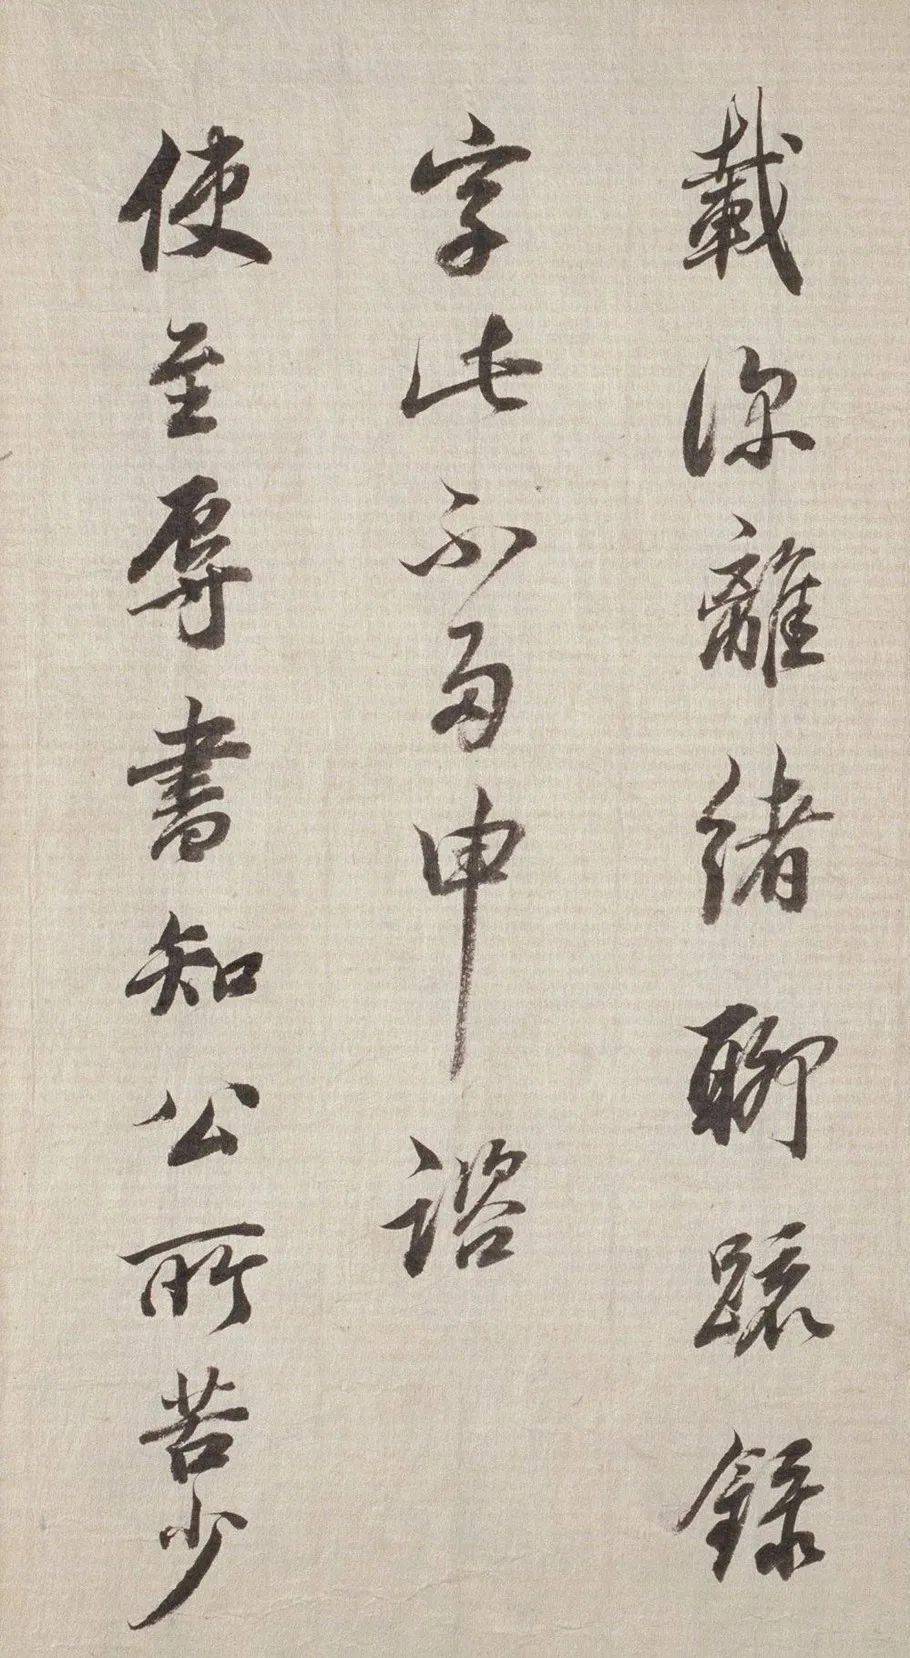 載深離緒聊疏錄
字此不多申諮
使至辱書知公所苦少